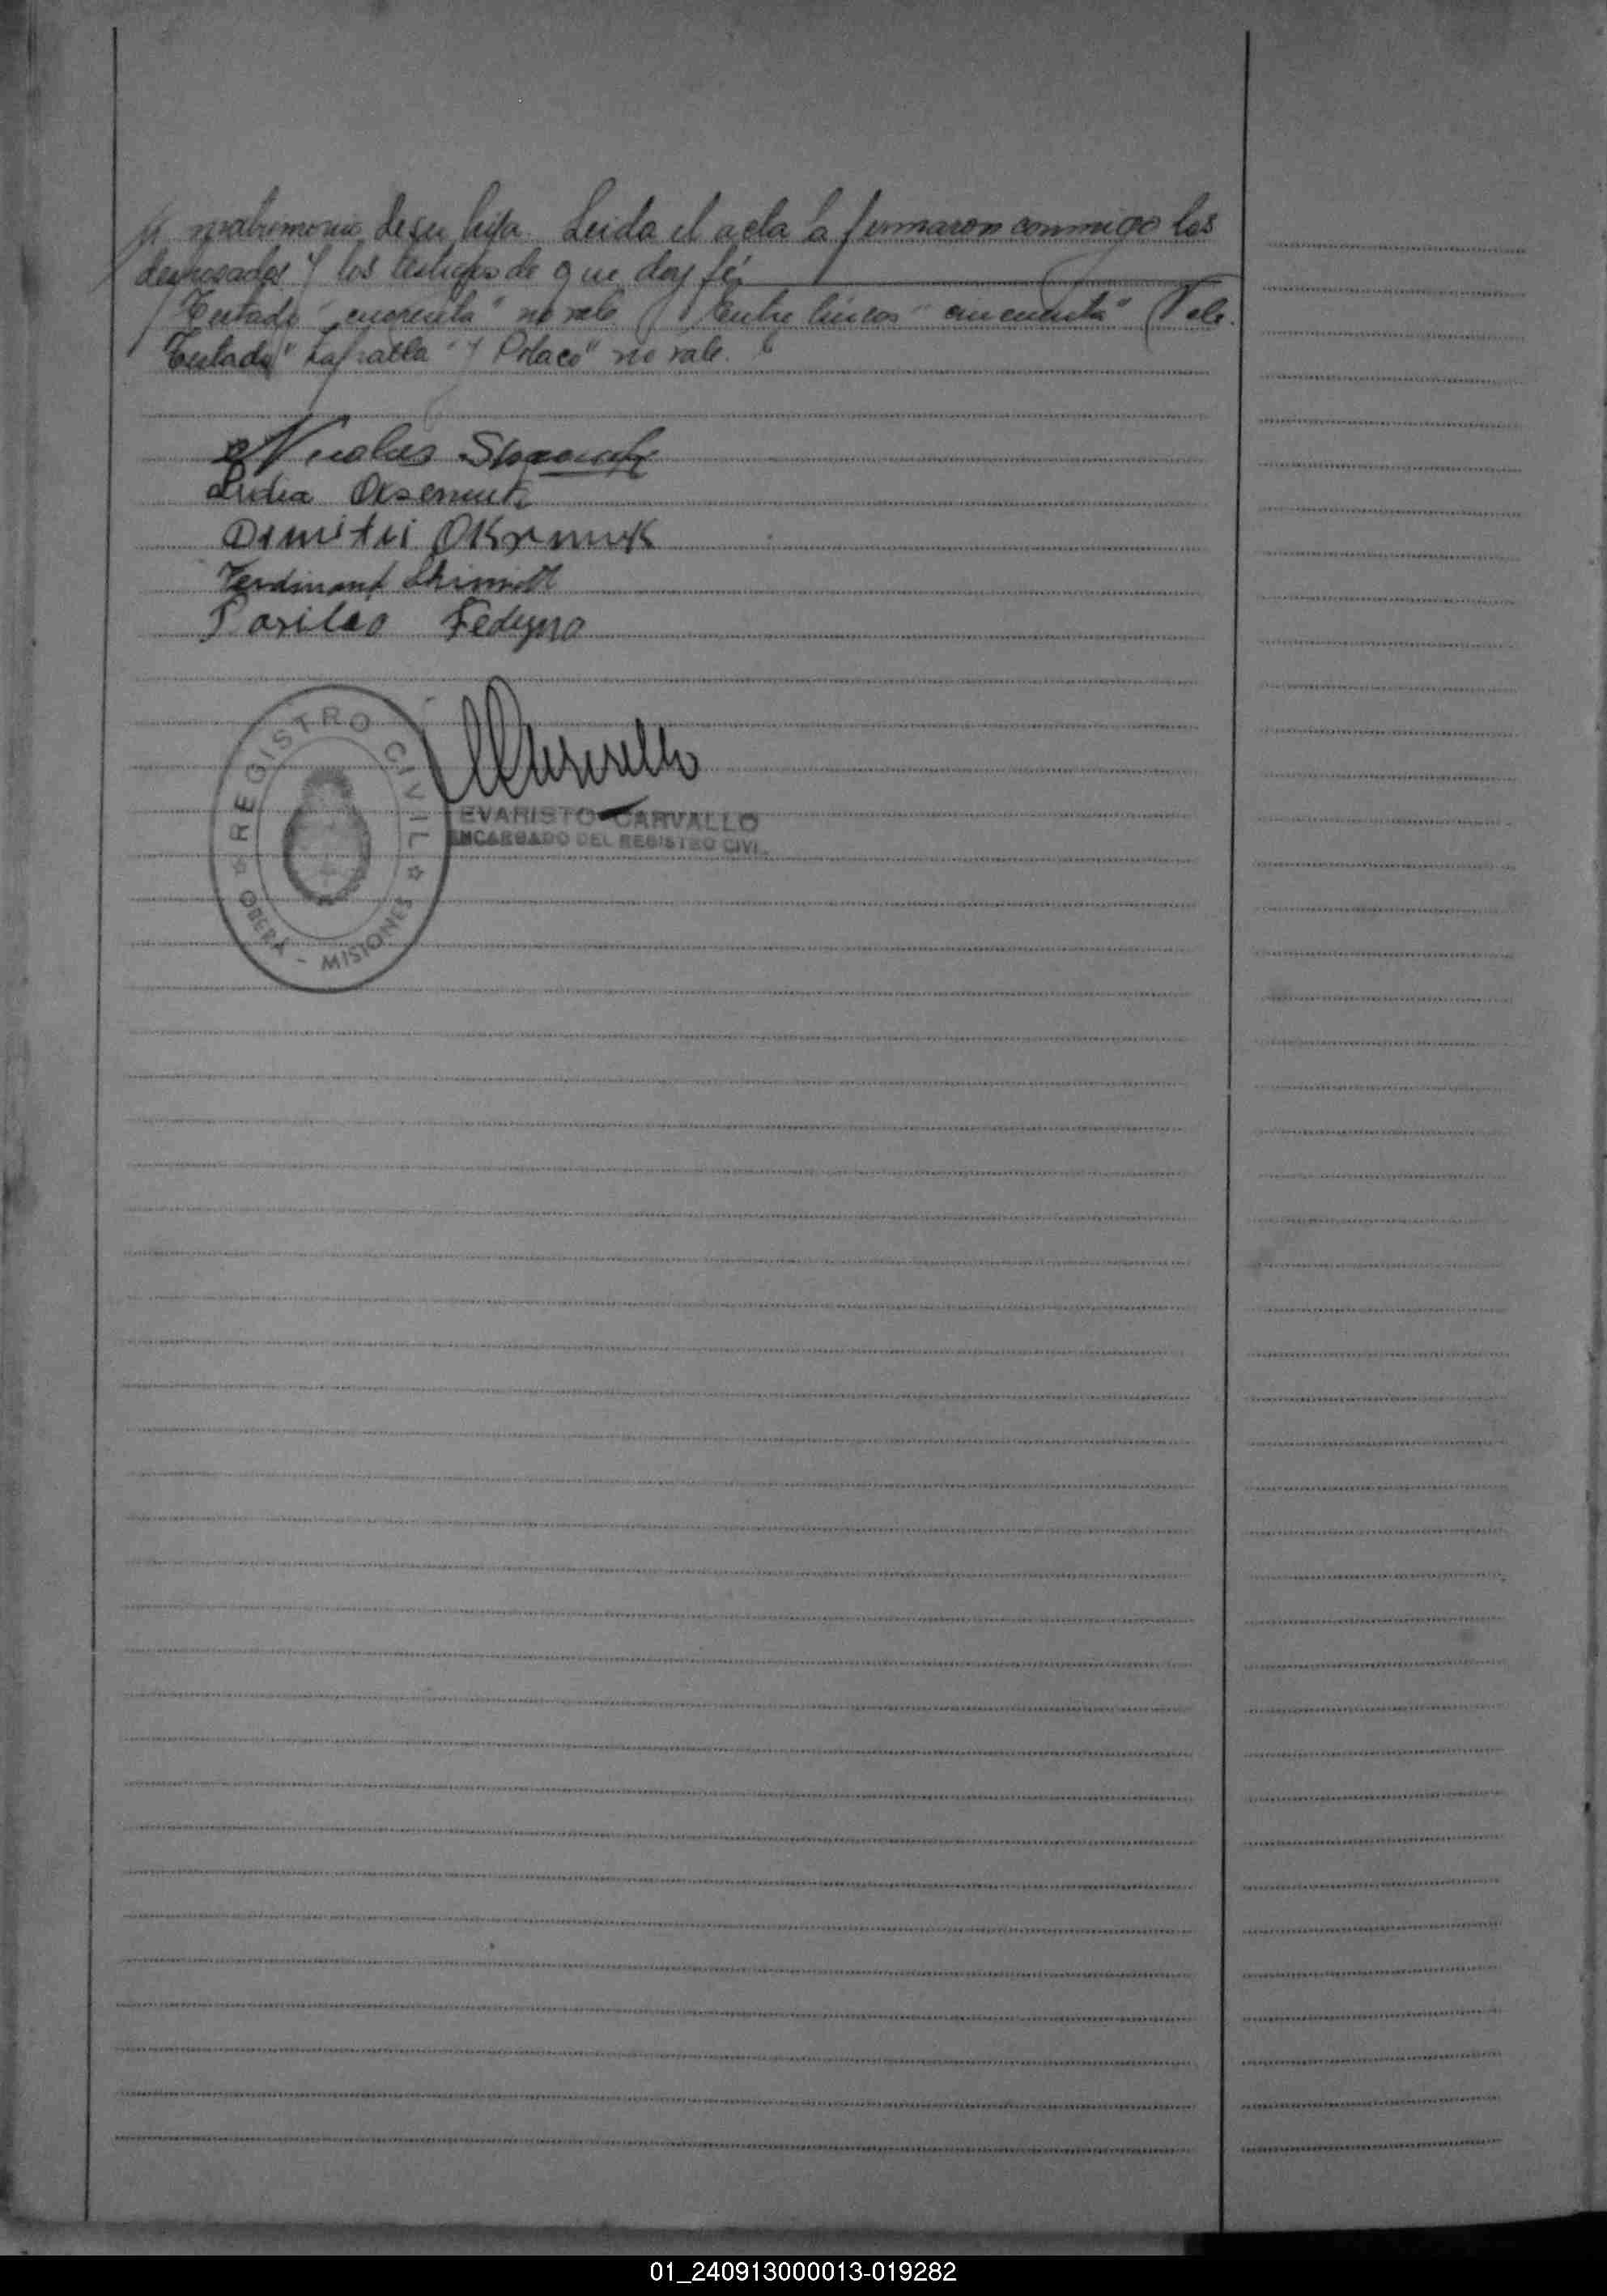 matrimonio de su hija. Leida el acta la firmaron conmigo los
desposados y los testigos de que doy fé
Testado "cuarenta" no vale Entre lineas "cincuenta" Vale.
Testado" " y Polaco" no vale.
Nicolas
Lidia
Dimitri
Ferdinant
Fedyna
REGISTRO CIVIL
OBERÁ - MISIONES
EVARISTO CARVALLO
ENCARGADO DEL REGISTRO CIVIL
01_240913000013-019282